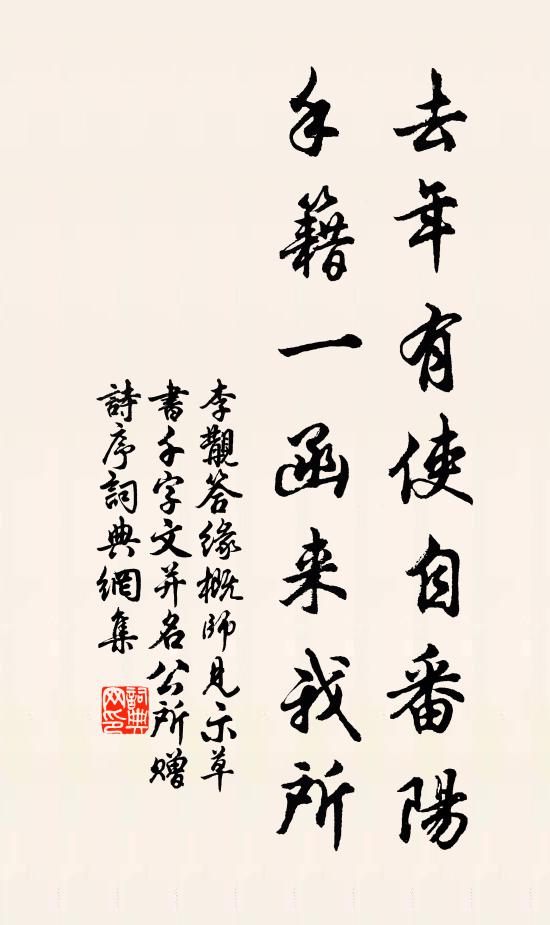 去年有使自番陽
手籍一函来我所
李觀答缘概師見示草
書千字文并名公所贈
詩序詞典網集
詞典
网印